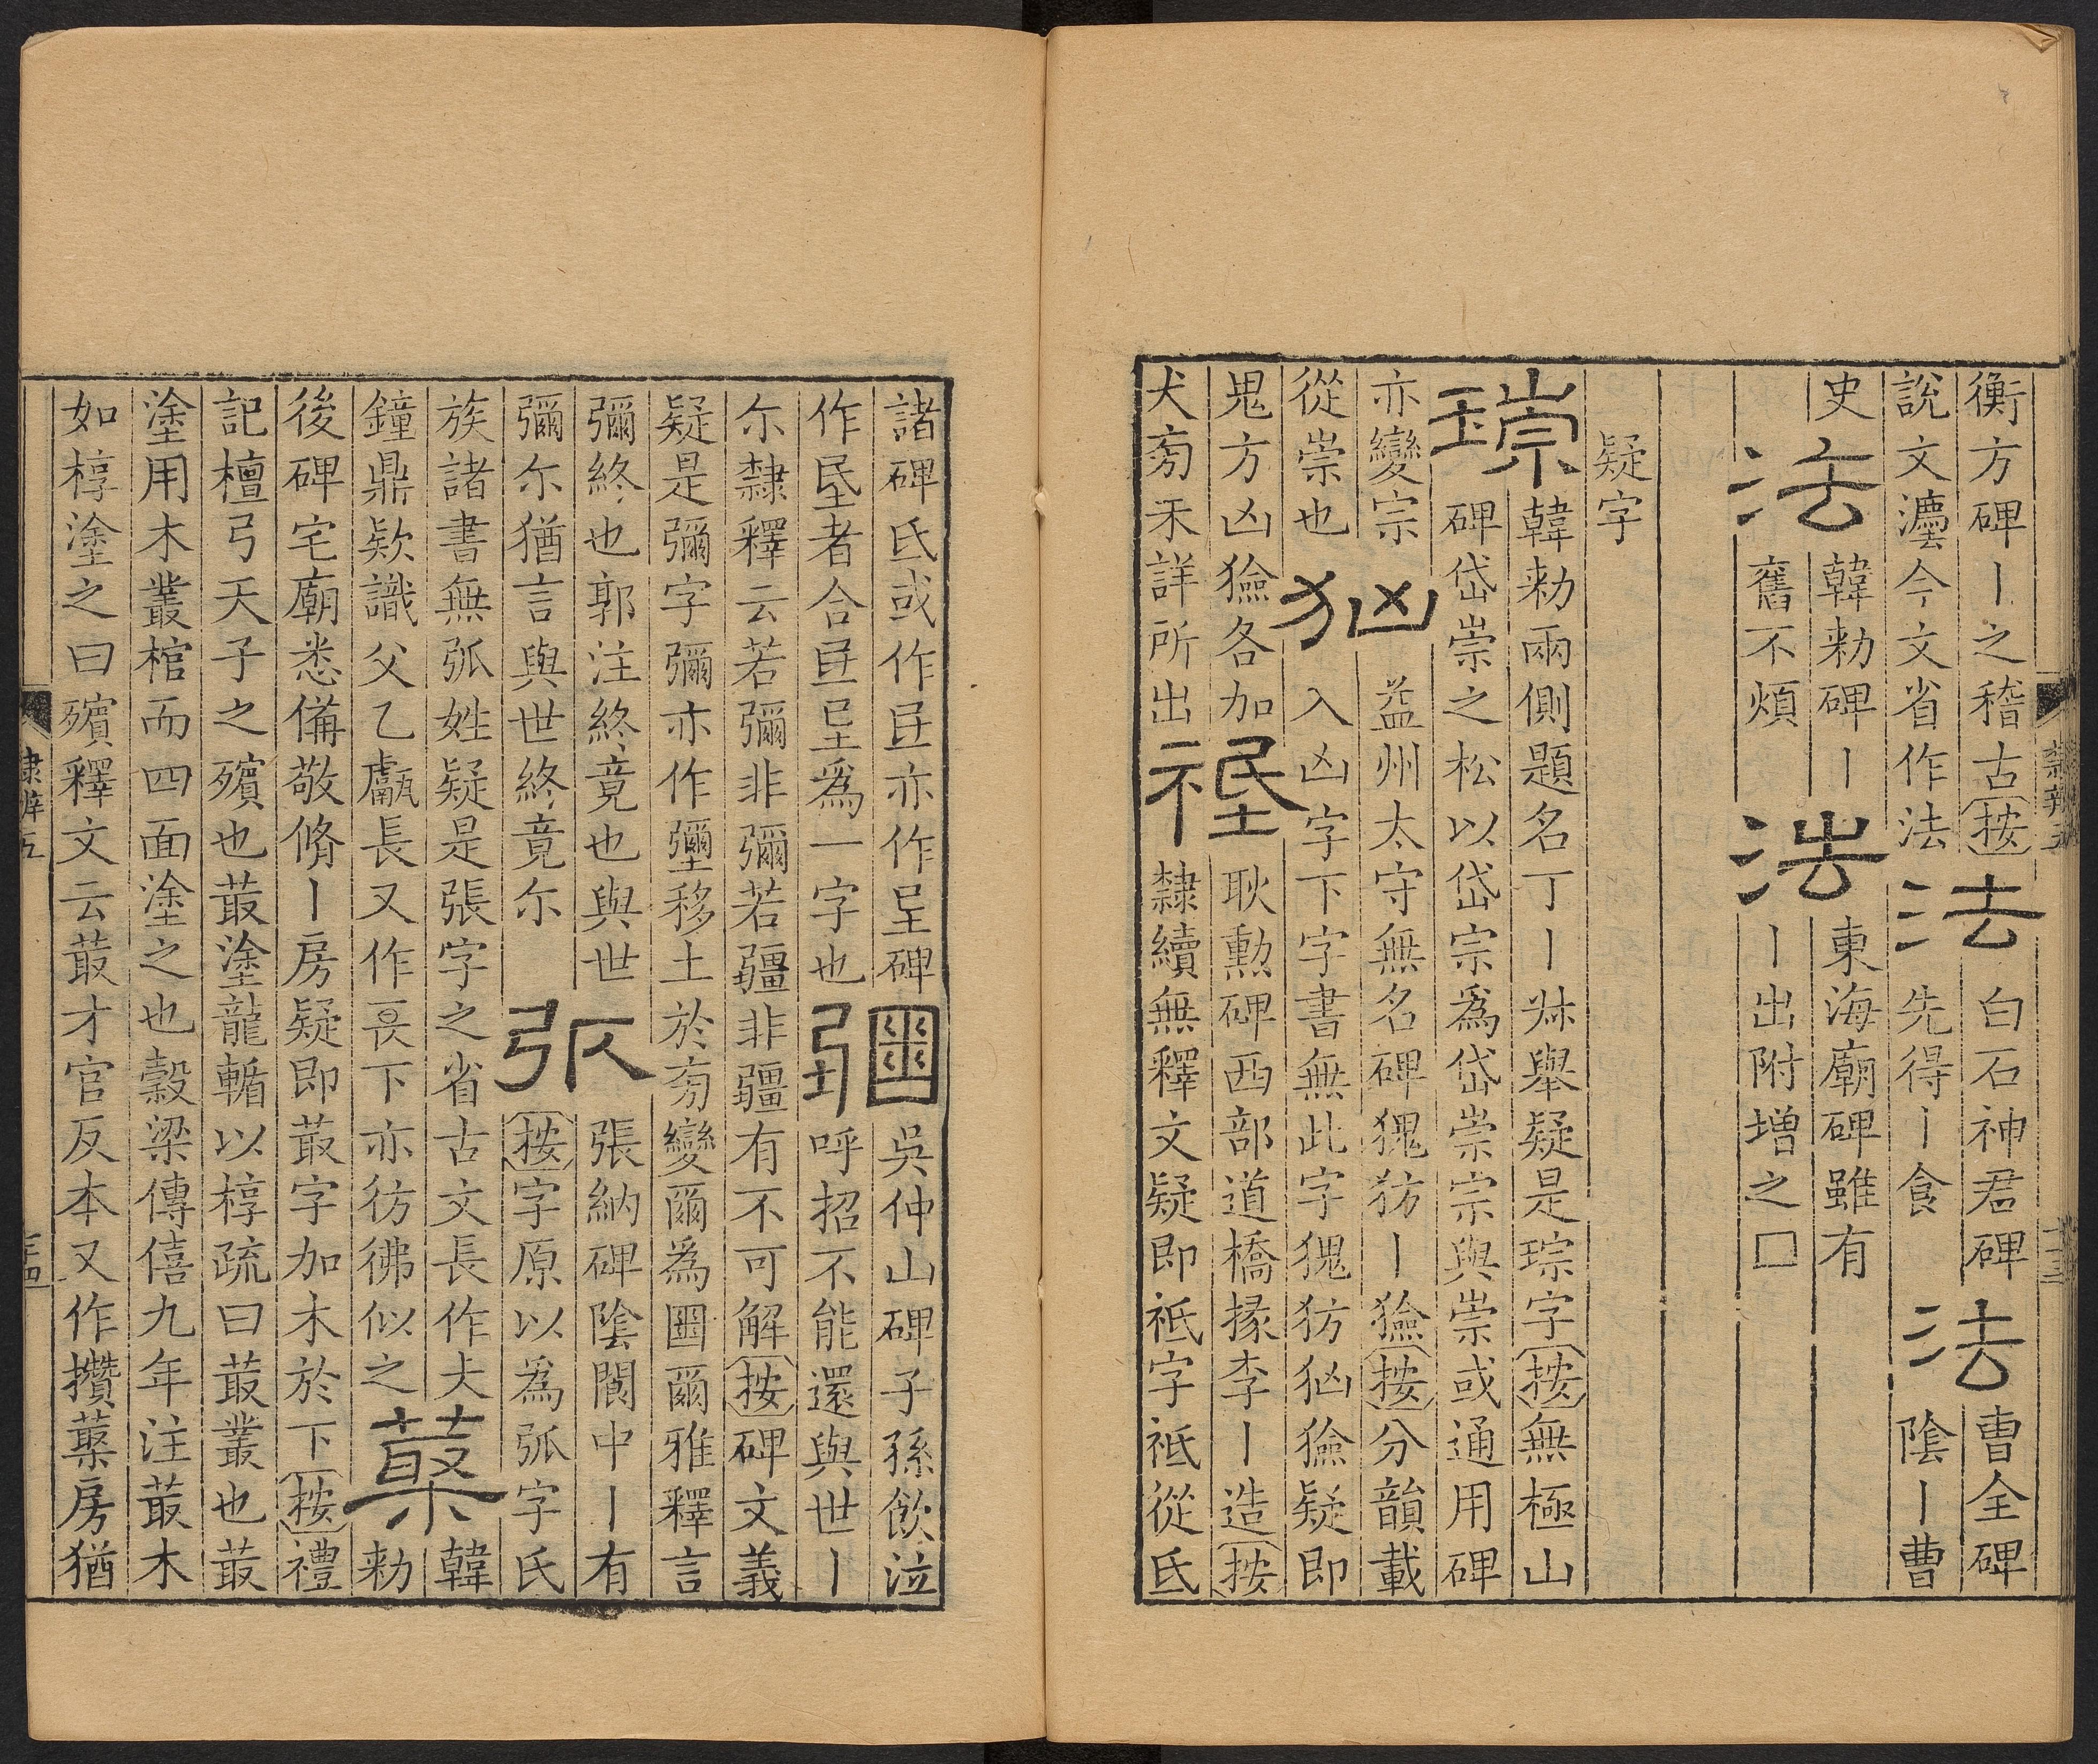 衡方碑丨之稽古按
說文灋今文省作法
法
白石神君碑
先得丨食
法
曹全碑
陰丨曹
史
法
韓勑碑丨
舊不煩
法
東海廟碑雖有
丨出附增之口
疑字
韓勑兩側題名丁丨叔舉疑是琮字按無極山
碑岱崇之松以岱宗爲岱崇宗與崇或通用碑
亦變宗
從崇也
益州太守無名碑犺丨獫按分韻載
入凶字下字書無此字犺獫疑即
鬼方凶獫各加
犬旁未詳所出
耿勳碑西部道橋掾李丨造按
隸續無釋文疑即祗字祗從氐
諸碑氐或作亦作碑
作者合爲一字也
吳仲山碑子孫飲泣
呼招不能還與世丨
尒隸釋云若彌非彌若疆非疆有不可解按碑文義
疑是彌字彌亦作壐移土於旁變爾爲爾雅釋言
彌終也郭注終竟也與世
彌尒猶言與世終竟尒
張納碑陰閬中丨有
按字原以爲弧字氏
族諸書無弧姓疑是張字之省古文長作夫
鐘鼎欵識父乙甗長又作下亦彷彿似之
韓
勑
後碑宅廟悉備敬脩丨房疑即菆字加木於下按禮
記檀弓天子之殯也菆塗龍輴以椁疏曰菆叢也菆
塗用木叢棺而四面塗之也穀梁傳僖九年注菆木
如椁塗之曰殯釋文云菆才官反本又作攢房猶
隸辨五